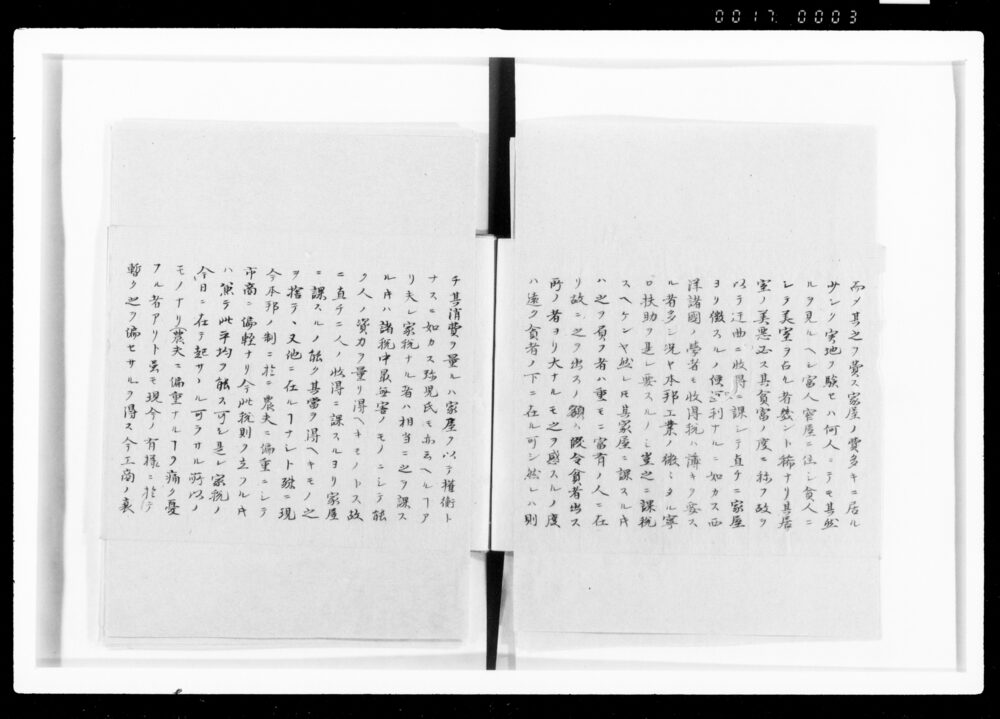 0017.0003
而メ其之ヲ費ス家屋ノ費多キニ居ル
サレク実地ヲ験セハ何人ニテモ其然
ルヲ見ルヘシ富人窄屋ニ住シ貧人ニ
シテ美室ヲ占ル者幾ント稀ナリ其居
室ノ美悪必ス其貧富ノ度ニ称フ故ヲ
以テ迂曲ニ収得ニ課シテ直チニ家屋
ヨリ徴スルノ便利ナルニ如カス西
洋諸國ノ労者モ収得税ハ薄キヲ容ス
ル者多シ況ヤ本邦工業ノ微ミタル寧
ロ扶助ヲ是レ要スルノミ豈之ニ課税
スヘケンヤ然レ𪜈其家屋ニ課スル𬼀
ハ之ヲ負フ者ハ重モニ富有ノ人ニ在
リ故ニ之ヲ出スノ額ハ仮令貧者出ス
所ノ者ヨリ大ナルモ之ヲ感スルノ度
ハ遠ク貧者ノ下ニ在ル可シ然レハ則
チ其消費ヲ量ルハ家屋ヲ以テ権衡ト
ナスニ如カス弥児氏モ亦云ヘルーア
リ夫レ家税ナル者ハ相当ニ之ヲ課ス
ルキハ諸税中最毎害ノモノニシテ能
ク人ノ資力ヲ量リ得ヘキモノトス故
ニ直チニ人ノ収得ニ課スルヨリ家屋
ニ課スルノ能ク其當ヲ得ヘキモノ之
ヲ捨テ、又他ニ在ルーナシト殊ニ現
今本邦ノ制ニ於ニ農夫ニ偏重ニシテ
市商ニ偏軽ナリ今此税則ヲ立ツルキ
ハ兼テ此平均ヲ能ス可シ是レ家税ノ
今日ニ在テ起サヽル可ラサル所以ノ
モノナリ農夫ニ偏重ナルーヲ痛ク憂
フル者アリト虽モ現今ノ有様ニ於テ
暫ク之ヲ偏セサルヲ得ス今工商ノ衰